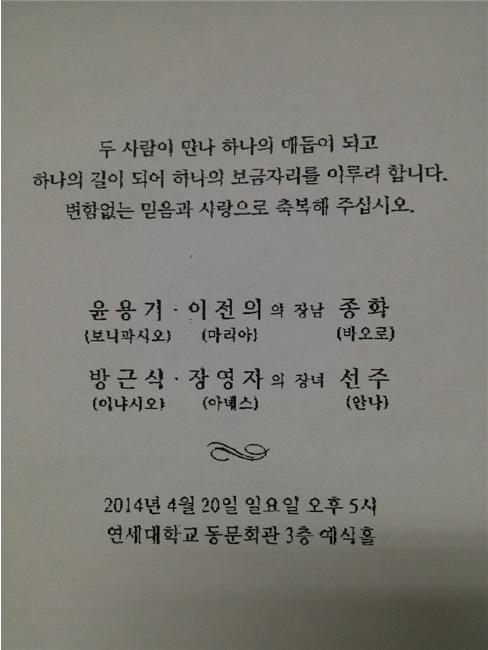 두 사람이 만나 하나의 매듭이 되고
하나의 길이 되어 하나의 보금자리를 이루려 합니다.
변함없는 믿음과 사랑으로 축복해 주십시오.
윤용기 · 이전의 의 장남 종화
(보니파시오) (마리아) (바오로)
방근식 · 장영자의 장녀 선주
(이냐시오) (아녜스) (안나)
2014년 4월 20일 일요일 오후 5시
연세대학교 동문회관 3층 예식홀